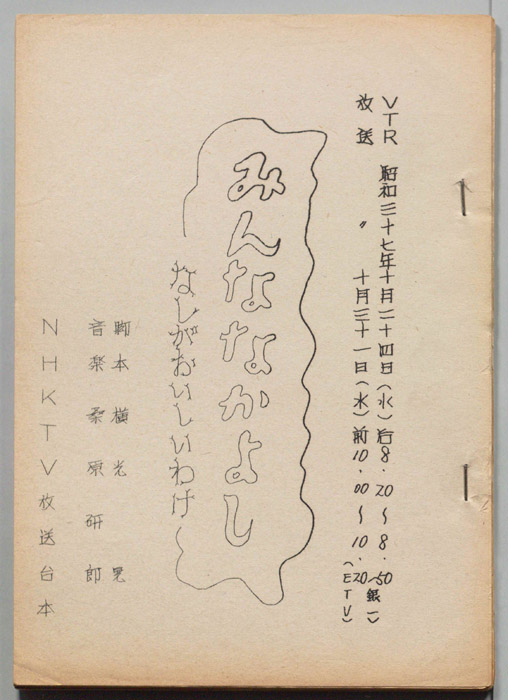 VTR 昭和三十七年十月二十四日(水)后8.20〜8.50(銀一)
放送 〃 十月三十一日(水)前10.00〜10.20(ETV)
みんななかよし
なしがおいしいわけ
脚本 横光 晃
音楽 桑原研郎
NHKTV放送台本